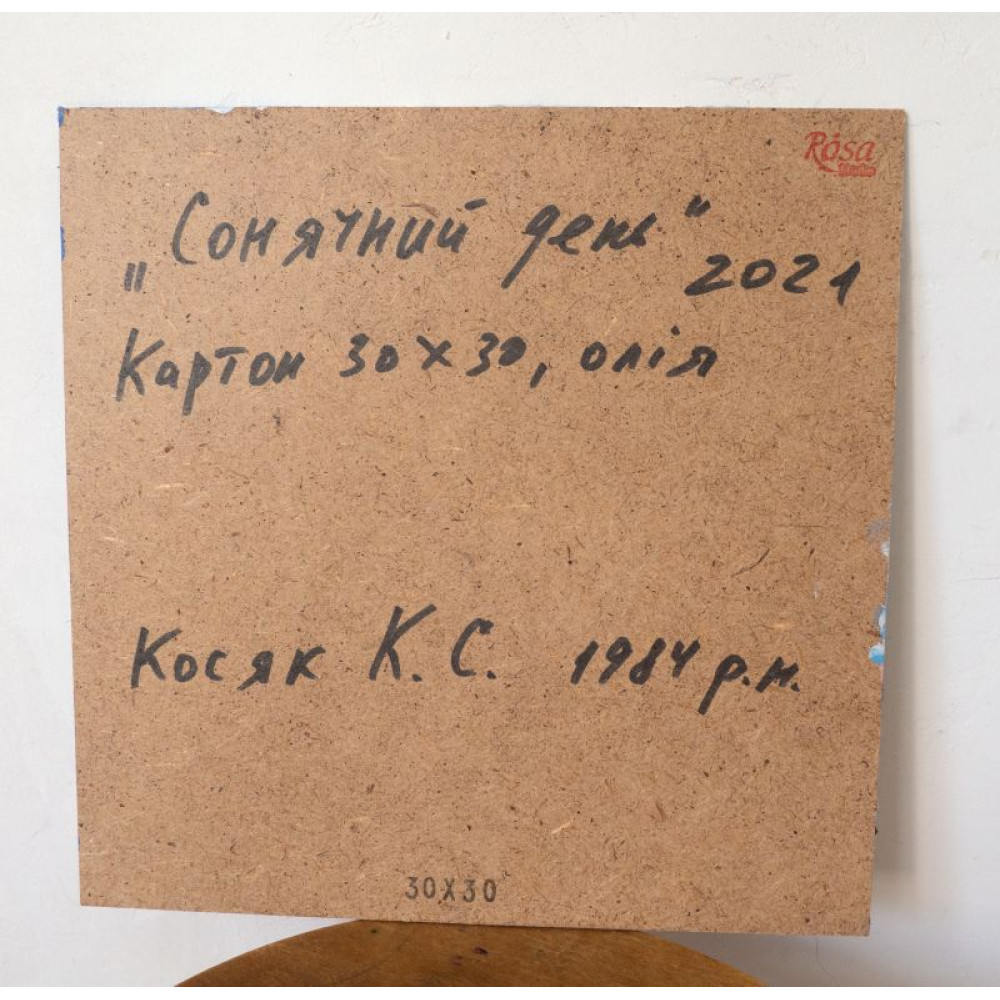 Rósa
Studio
„Сонячний день" 2021
Картон 30х30, олія
Косяк К.С. 1984 р.н.
30X30